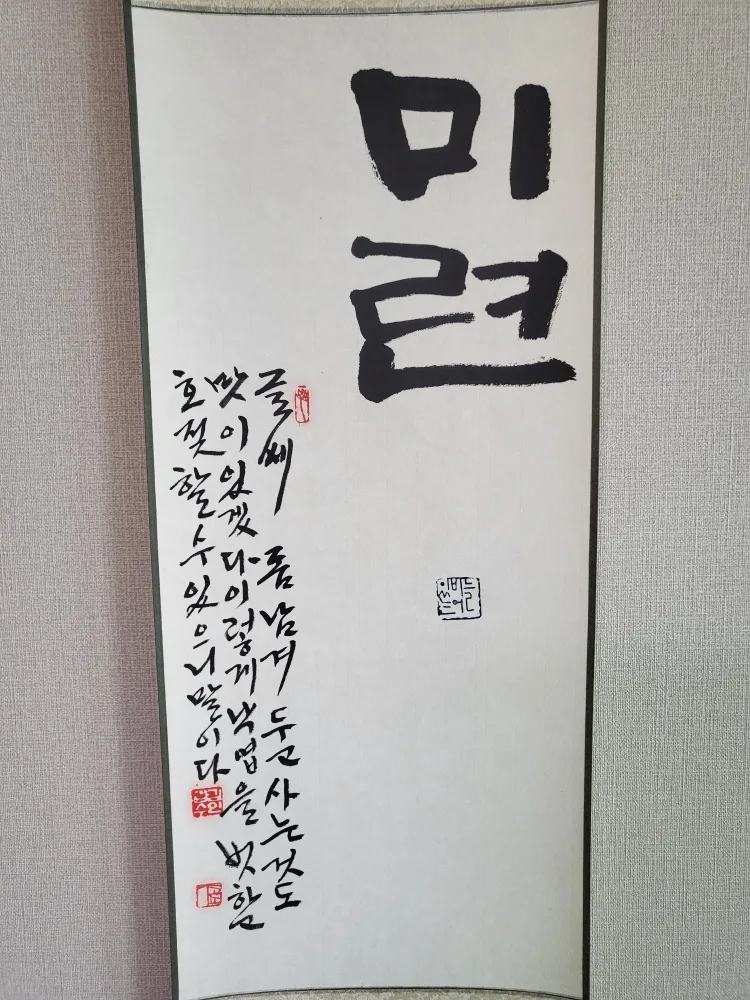 미련
글쎄 좀 남겨 두고 사는것도
맛이 있겠다 이렇게 낙엽을 벗함
호젓할 수 있으니 말이다